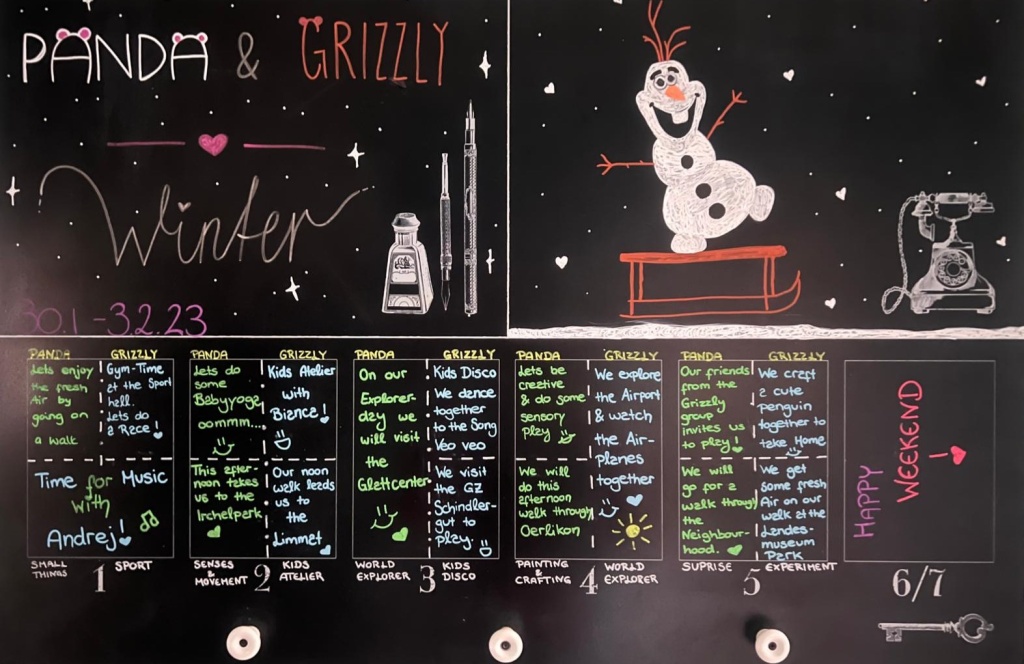 PANDA & GRIZZLY
Winter
30.1 - 3.2.23
PANDA
Lets enjoy
the fresh
Air by
going on
a walk
GRIZZLY
Gym-Time
at the Sport
hall.
Lets do
a Race!
Time for Music
with
Andrej!
SMALL
THINGS
1
SPORT
PANDA
Lets do
some
Babyyoga,
oommm...
GRIZZLY
Kids Atelier
with
Bianca!
This after-
noon takes
us to the
Irchelpark
Our noon
walk leads
us to
the
Limmet
SENSES
&
MOVEMENT
2
KIDS
ATELIER
PANDA
On our
Explorer-
day we
will visit
the
Glattcenter
GRIZZLY
Kids Disco
We dance
together
to the Song
Veo veo
We visit
the GZ
Schindler-
gut to
play.
WORLD
EXPLORER
3
KIDS
DISCO
PANDA
Lets be
creative
& do some
sensory
play
We will
do this
afternoon
walk through
Oerlikon
GRIZZLY
We explore
the Airport
& watch
the Air-
planes
together
PAINTING
&
CRAFTING
4
WORLD
EXPLORER
PANDA
Our friends
from the
Grizzly
group
invites us
to play!
GRIZZLY
We craft
a cute
penguin
together to
take Home
We will
go for a
walk through
the
Neighbour-
hood.
We get
some fresh
Air on our
walk at the
Landes-
museum
Park
SUPRISE
5
EXPERIMENT
HAPPY
WEEKEND
6/7